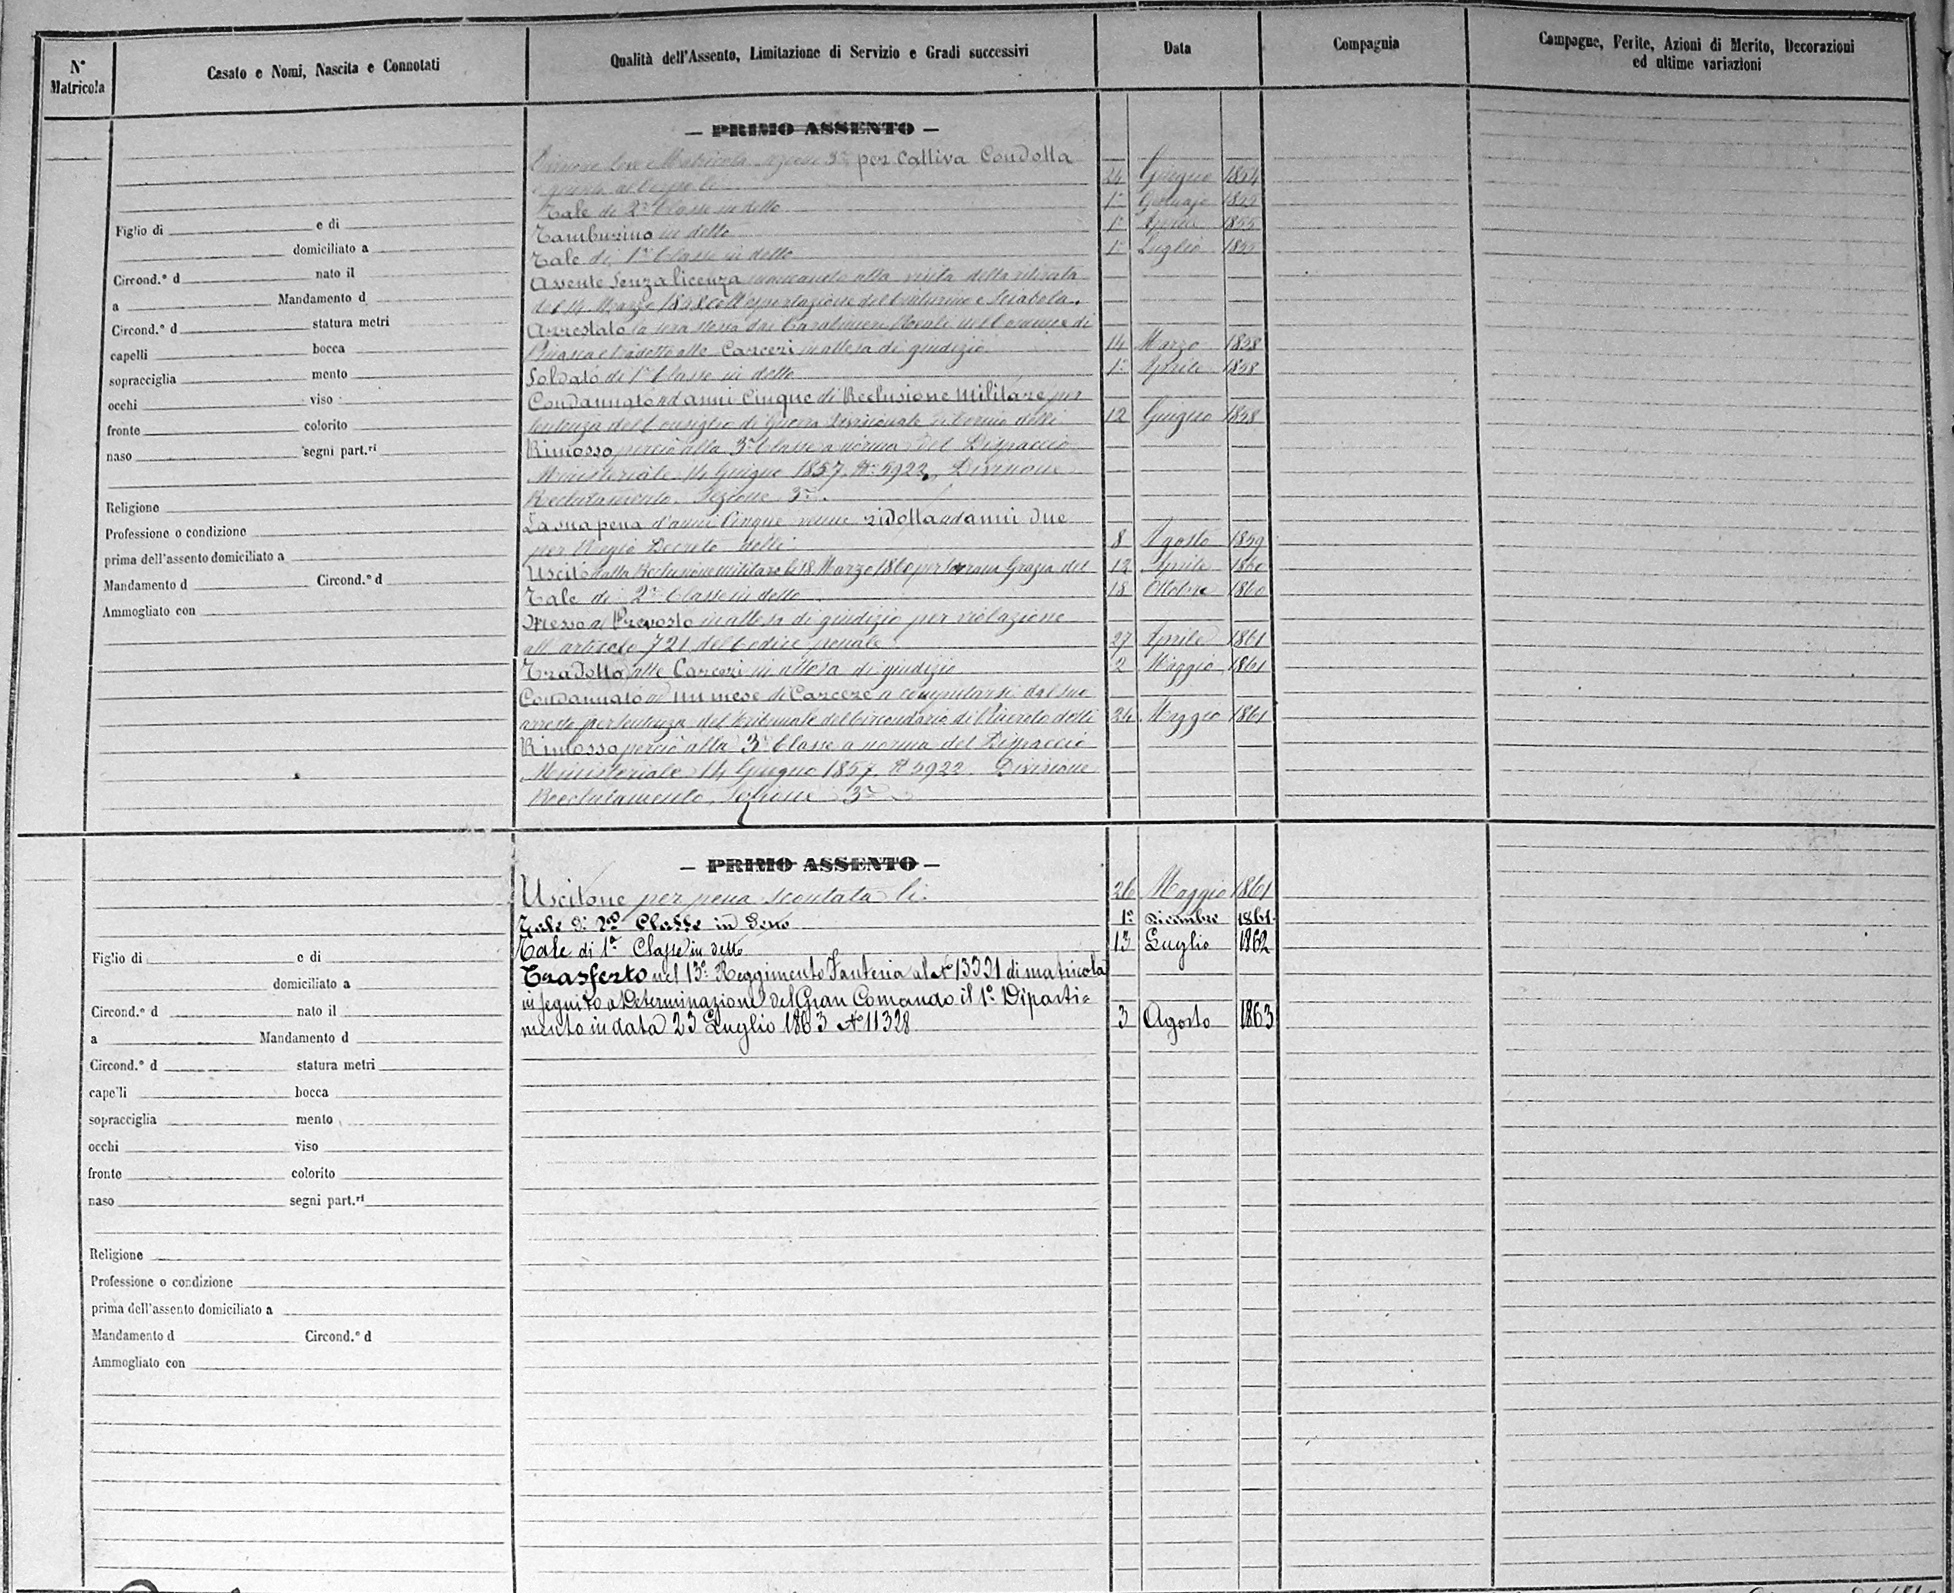 N° Matricola
Casato e Nomi, Nascita e Connotati
Qualità dell'Assento, Limitazione di Servizio e Gradi successivi
Data
Compagnia
Campagne, Ferite, Azioni di Merito, Decorazioni
ed ultime variazioni
— PRIMO ASSENTO —
Figlio di e di
domiciliato a
Circond.° d nato il
a Mandamento d
Circond.° d statura metri
capelli bocca
sopracciglia mento
occhi viso
fronte colorito
naso segni part.ri
Religione
Professione o condizione
prima dell'assento domiciliato a
Mandamento d Circond.° d
Ammogliato con
3ª per Cattiva Condotta
24 Giugno 1854
Tale di 2ª Classe in detto 1° Gennajo 1855
Tamburino in detto 1° Aprile 1855
Tale di 1ª Classe in detto 1° Luglio 1855
Assente senza licenza mancando alla visita della ritirata
del 14 Marzo 1858 coll'esportazione del Centurino e Sciabola.
Arrestato la sera stessa dai Carabinieri Reali nel Comune di
e tradotto alle Carceri in attesa di giudizio 14 Marzo 1858
Soldato di 1ª Classe in detto 1° Aprile 1858
Condannato ad anni Cinque di Reclusione Militare per
sentenza del Consiglio di Guerra Divisionale di Torino delli 12 Giugno 1858
Rimosso perciò alla 3ª Classe a norma del Dispaccio
Ministeriale 14 Giugno 1857 N° 5922, Divisione
Reclutamento, Sezione 3ª.
La sua pena d'anni Cinque venne ridotta ad anni Due
per Regio Decreto delli 8 Agosto 1859
Uscito dalla Reclusione militare li 18 Marzo 1860 per Sovrana Grazia del 12 Aprile 1860
Tale di 2ª Classe in detto 18 Ottobre 1860
Messo al Prevosto in attesa di giudizio per violazione
all'articolo 721 del Codice penale 27 Aprile 1861
Tradotto alle Carceri in attesa di giudizio 2 Maggio 1861
Condannato ad un mese di Carcere a computarsi dal suo
arresto per sentenza del Tribunale del Circondario di Pinerolo delli 24 Maggio 1861
Rimosso perciò alla 3ª Classe a norma del Dispaccio
Ministeriale 14 Giugno 1857 N° 5922 Divisione
Reclutamento, Sezione 3ª
— PRIMO ASSENTO —
Uscitone per pena scontata li 26 Maggio 1861
Tale di 2ª Classe in Detto 1° Dicembre 1861
Tale di 1ª Classe in detto 13 Luglio 1862
Trasferto nel 13° Reggimento Fanteria al N° 13391 di matricola
in seguito a Determinazione del Gran Comando il 1° Diparti=
mento in data 23 Luglio 1863 N° 11328 3 Agosto 1863
Figlio di e di
domiciliato a
Circond.° d nato il
a Mandamento d
Circond.° d statura metri
capelli bocca
sopracciglia mento
occhi viso
fronte colorito
naso segni part.ri
Religione
Professione o condizione
prima dell'assento domiciliato a
Mandamento d Circond.° d
Ammogliato con